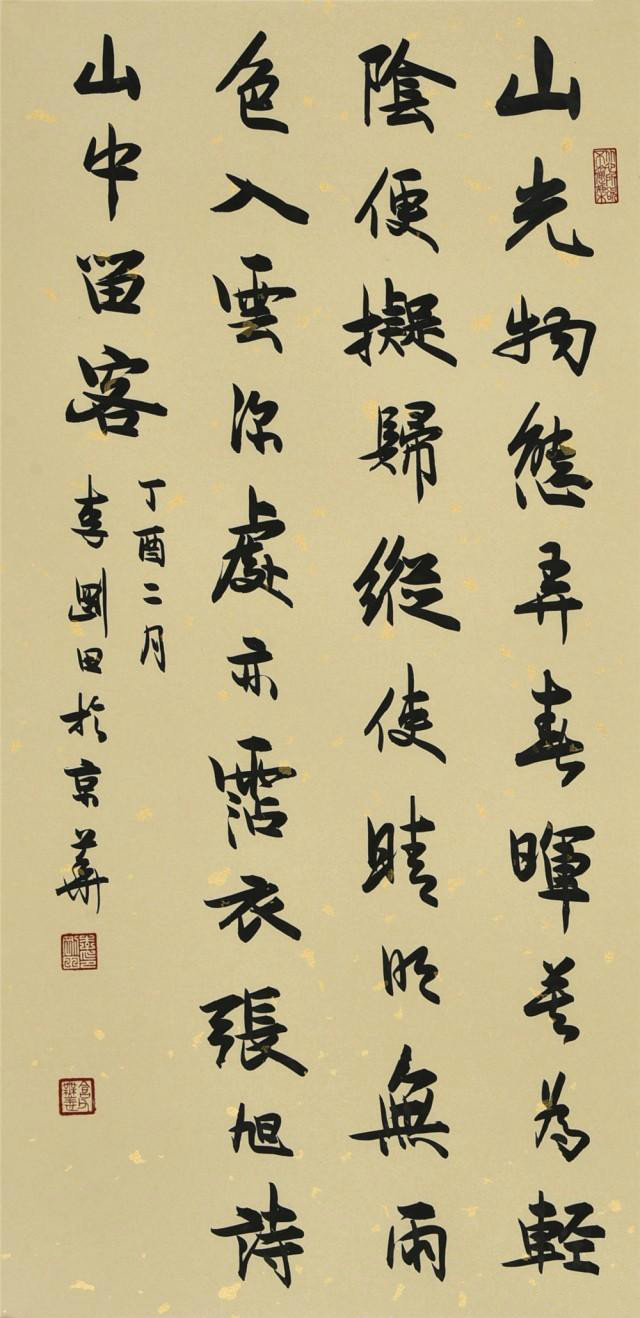 山光物態弄春暉莫為輕
陰便擬歸縱使晴明無雨
色入雲深處亦霑衣張旭詩
山中留客
丁酉二月
李剛田於京華